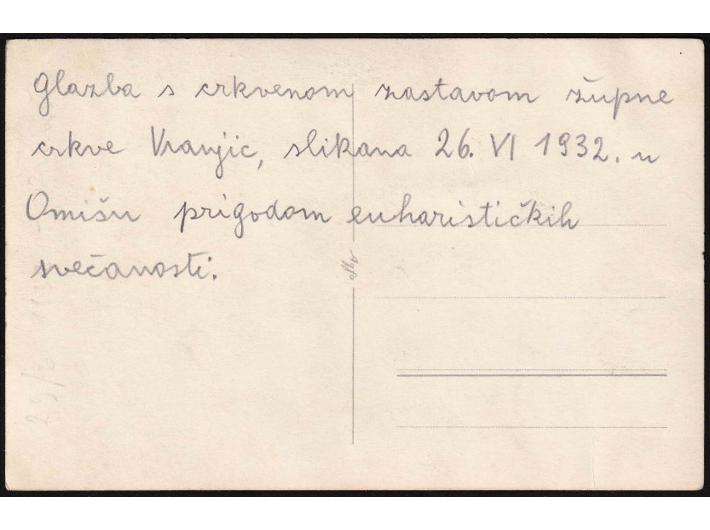 Glazba s crkvenom zastavom župne
crkve Vranjic, slikana 26. VI 1932. u
Omišu prigodom euharističkih
svečanosti.